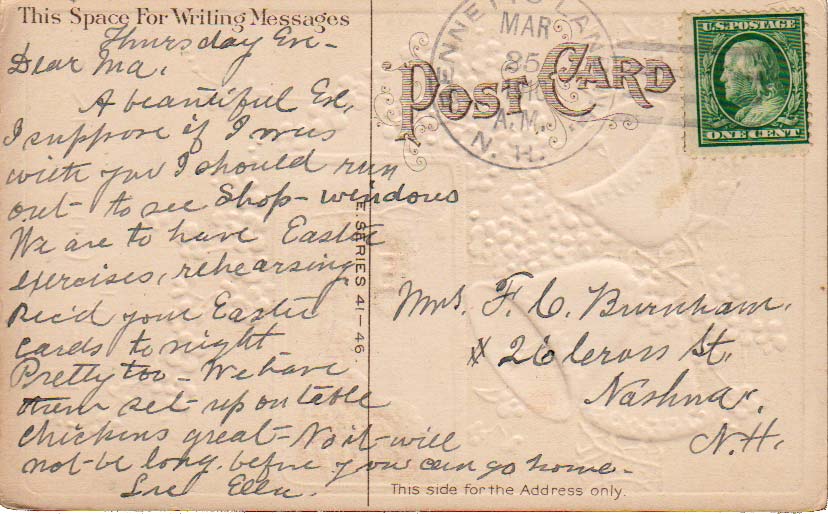 This Space For Writing Messages
Thursday Eve-
Dear Ma,
A beautiful Eve,
I suppose if I was
with you I should run
out - to see Shop - windows
We are to have Easter
exercises, rehearsing
Rec'd your Easter
cards to night
Pretty too - We have
them set - up on table
chickens great - No it - will
not - be long before you can go home -
Ella.
E. SERIES 41-46.
POST CARD
MAR
25
A.M.
N. H.
U.S. POSTAGE
ONE CENT
Mrs. F. C. Burnham,
26 Cross St,
Nashua,
N.H.
This side for the Address only.